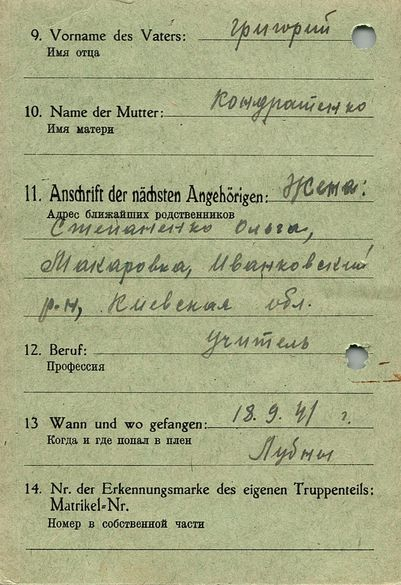 9. Vorname des Vaters: григорий
Имя отца
10. Name der Mutter: Кондратенко
Имя матери
11. Anschrift der nächsten Angehörigen: Жена:
Адрес ближайших родственников
Степаненко Ольга,
Макаровка, Иванковский
р-н, Киевская обл.
12. Beruf: учитель
Профессия
13 Wann und wo gefangen: 18. 9. 41 г.
Когда и где попал в плен
Лубны
14. Nr. der Erkennungsmarke des eigenen Truppenteils:
Matrikel-Nr.
Номер в собственной части